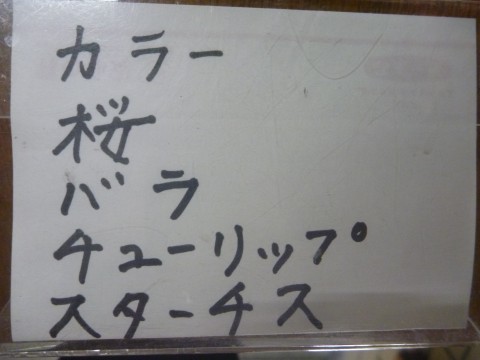 カラー
桜
バラ
チューリップ
スターチス